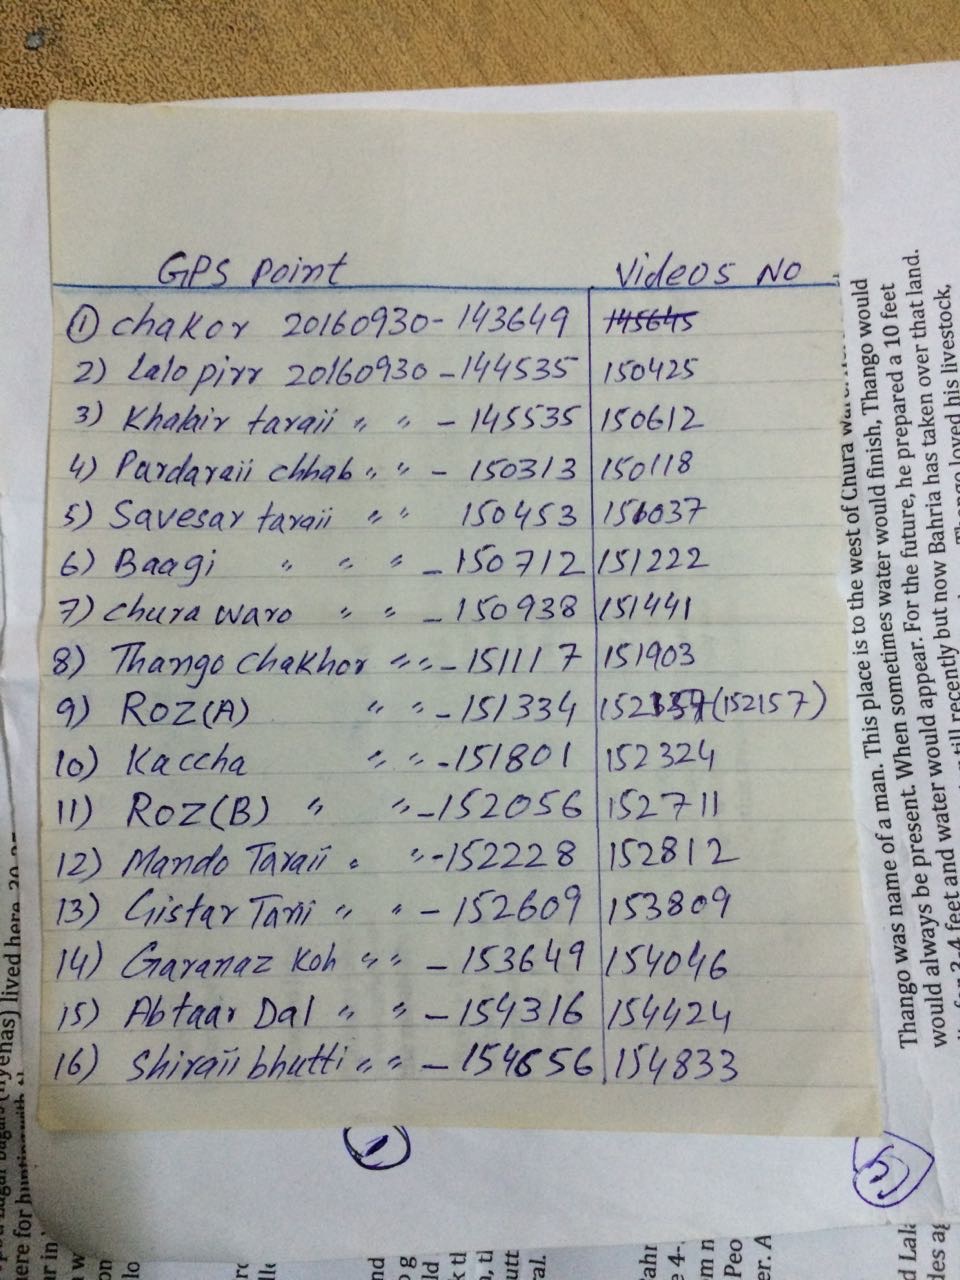 GPS Point Videos NO
① Chakor 20160930- 143649 145645
2) Lalo pirr 20160930 - 144535 150425
3) Khabir taraii " " - 145535 150612
4) Pardaraii chhab " " - 150313 150118
5) Savesar taraii " " 150453 156037
6) Baagi " " " - 150712 151222
7) Chura waro " " - 150938 151441
8) Thango Chakhor " " - 151117 151903
9) ROZ(A) " " - 151334 (152157)
10) Kaccha " " - 151801 152324
11) ROZ(B) " " - 152056 152711
12) Mando Taraii " " - 152228 152812
13) Gistar Tarii " " - 152609 153809
14) Garanaz Koh " " - 153649 154046
15) Abtaar Dal " " - 154316 154424
16) Shiraii bhutti " " - 154656 154833
Thango was name of a man. This place is to the west of Chura
would always be present. When sometimes water would finish, Thango would
and water would appear. For the future, he prepared a 10 feet
3-4 feet till recently but now Bahria has taken over that land.
Thango loved his livestock,
(hyenas) lived here